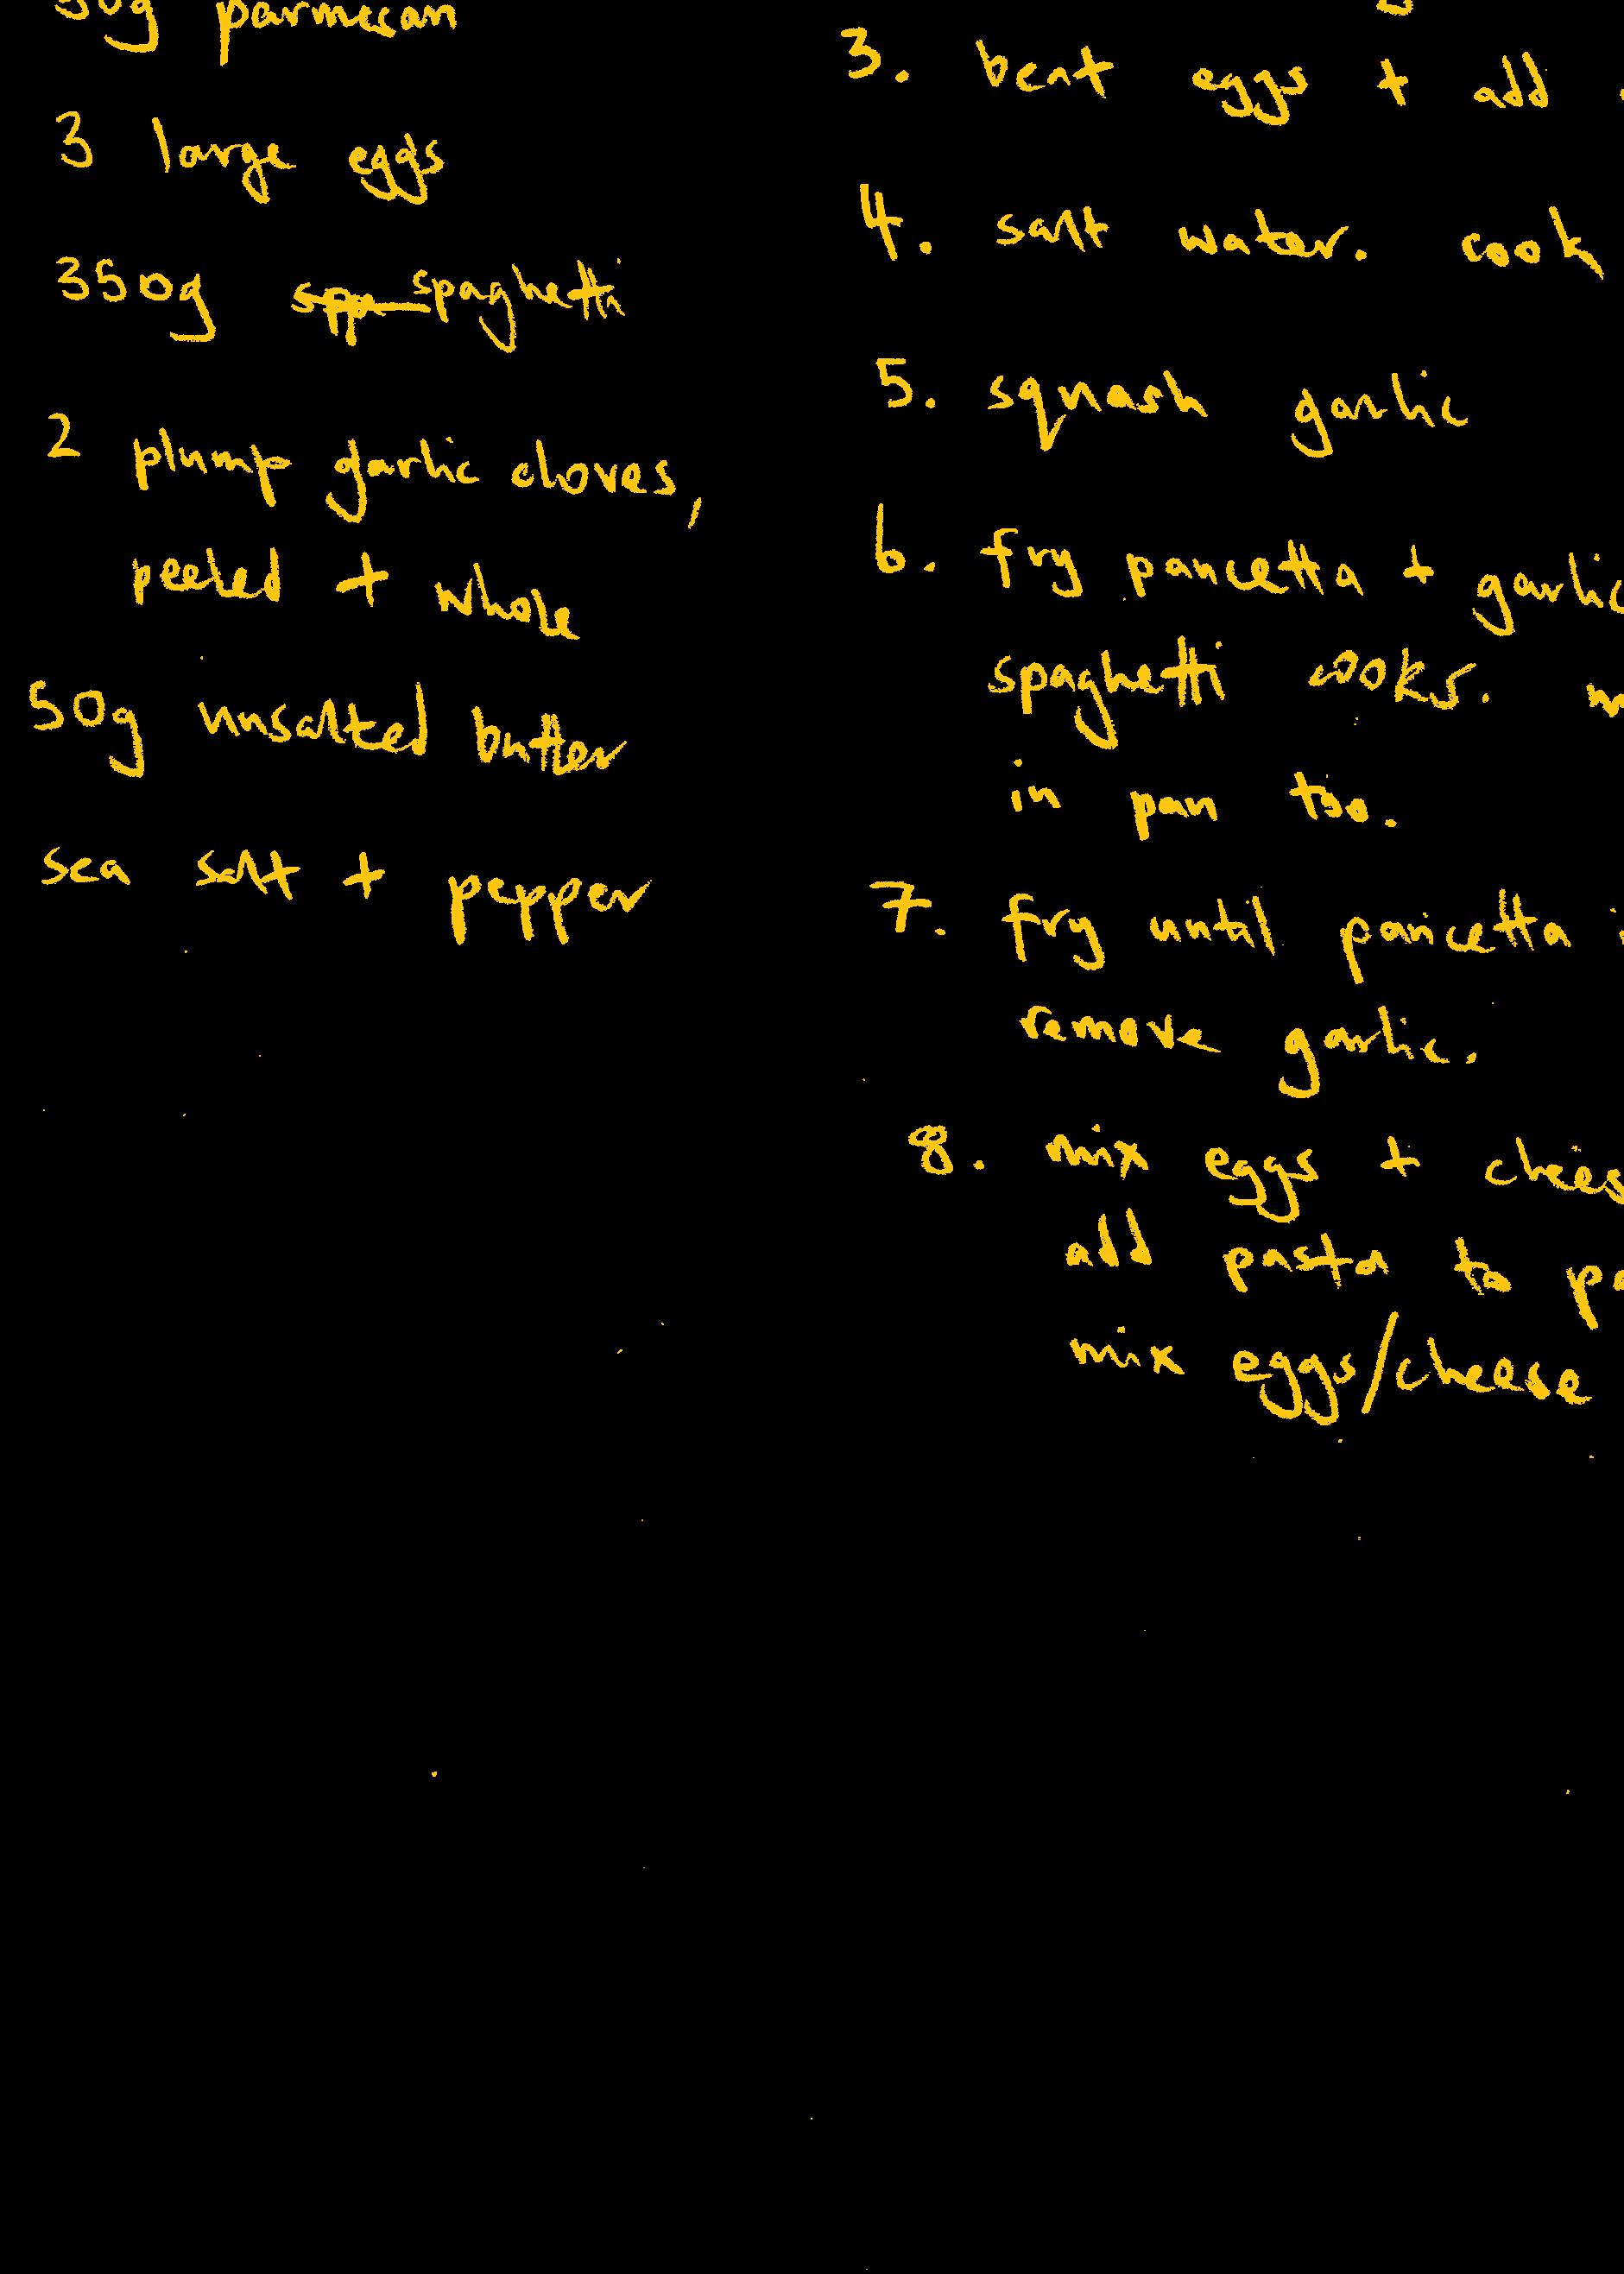 parmesan
3 large eggs
350g spa spaghetti
2 plump garlic cloves,
peeled + whole
50g unsalted butter
sea salt + pepper
3. beat eggs + add
4. salt water. cook
5. squash garlic
6. fry pancetta + garlic
spaghetti cooks.
in pan too.
7. fry until pancetta
remove garlic.
8. mix eggs + chees
add pasta to
mix eggs/cheese